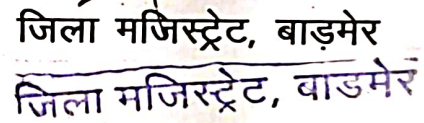 जिला मजिस्ट्रेट, बाड़मेर
जिला मजिस्ट्रेट, बाडमेर